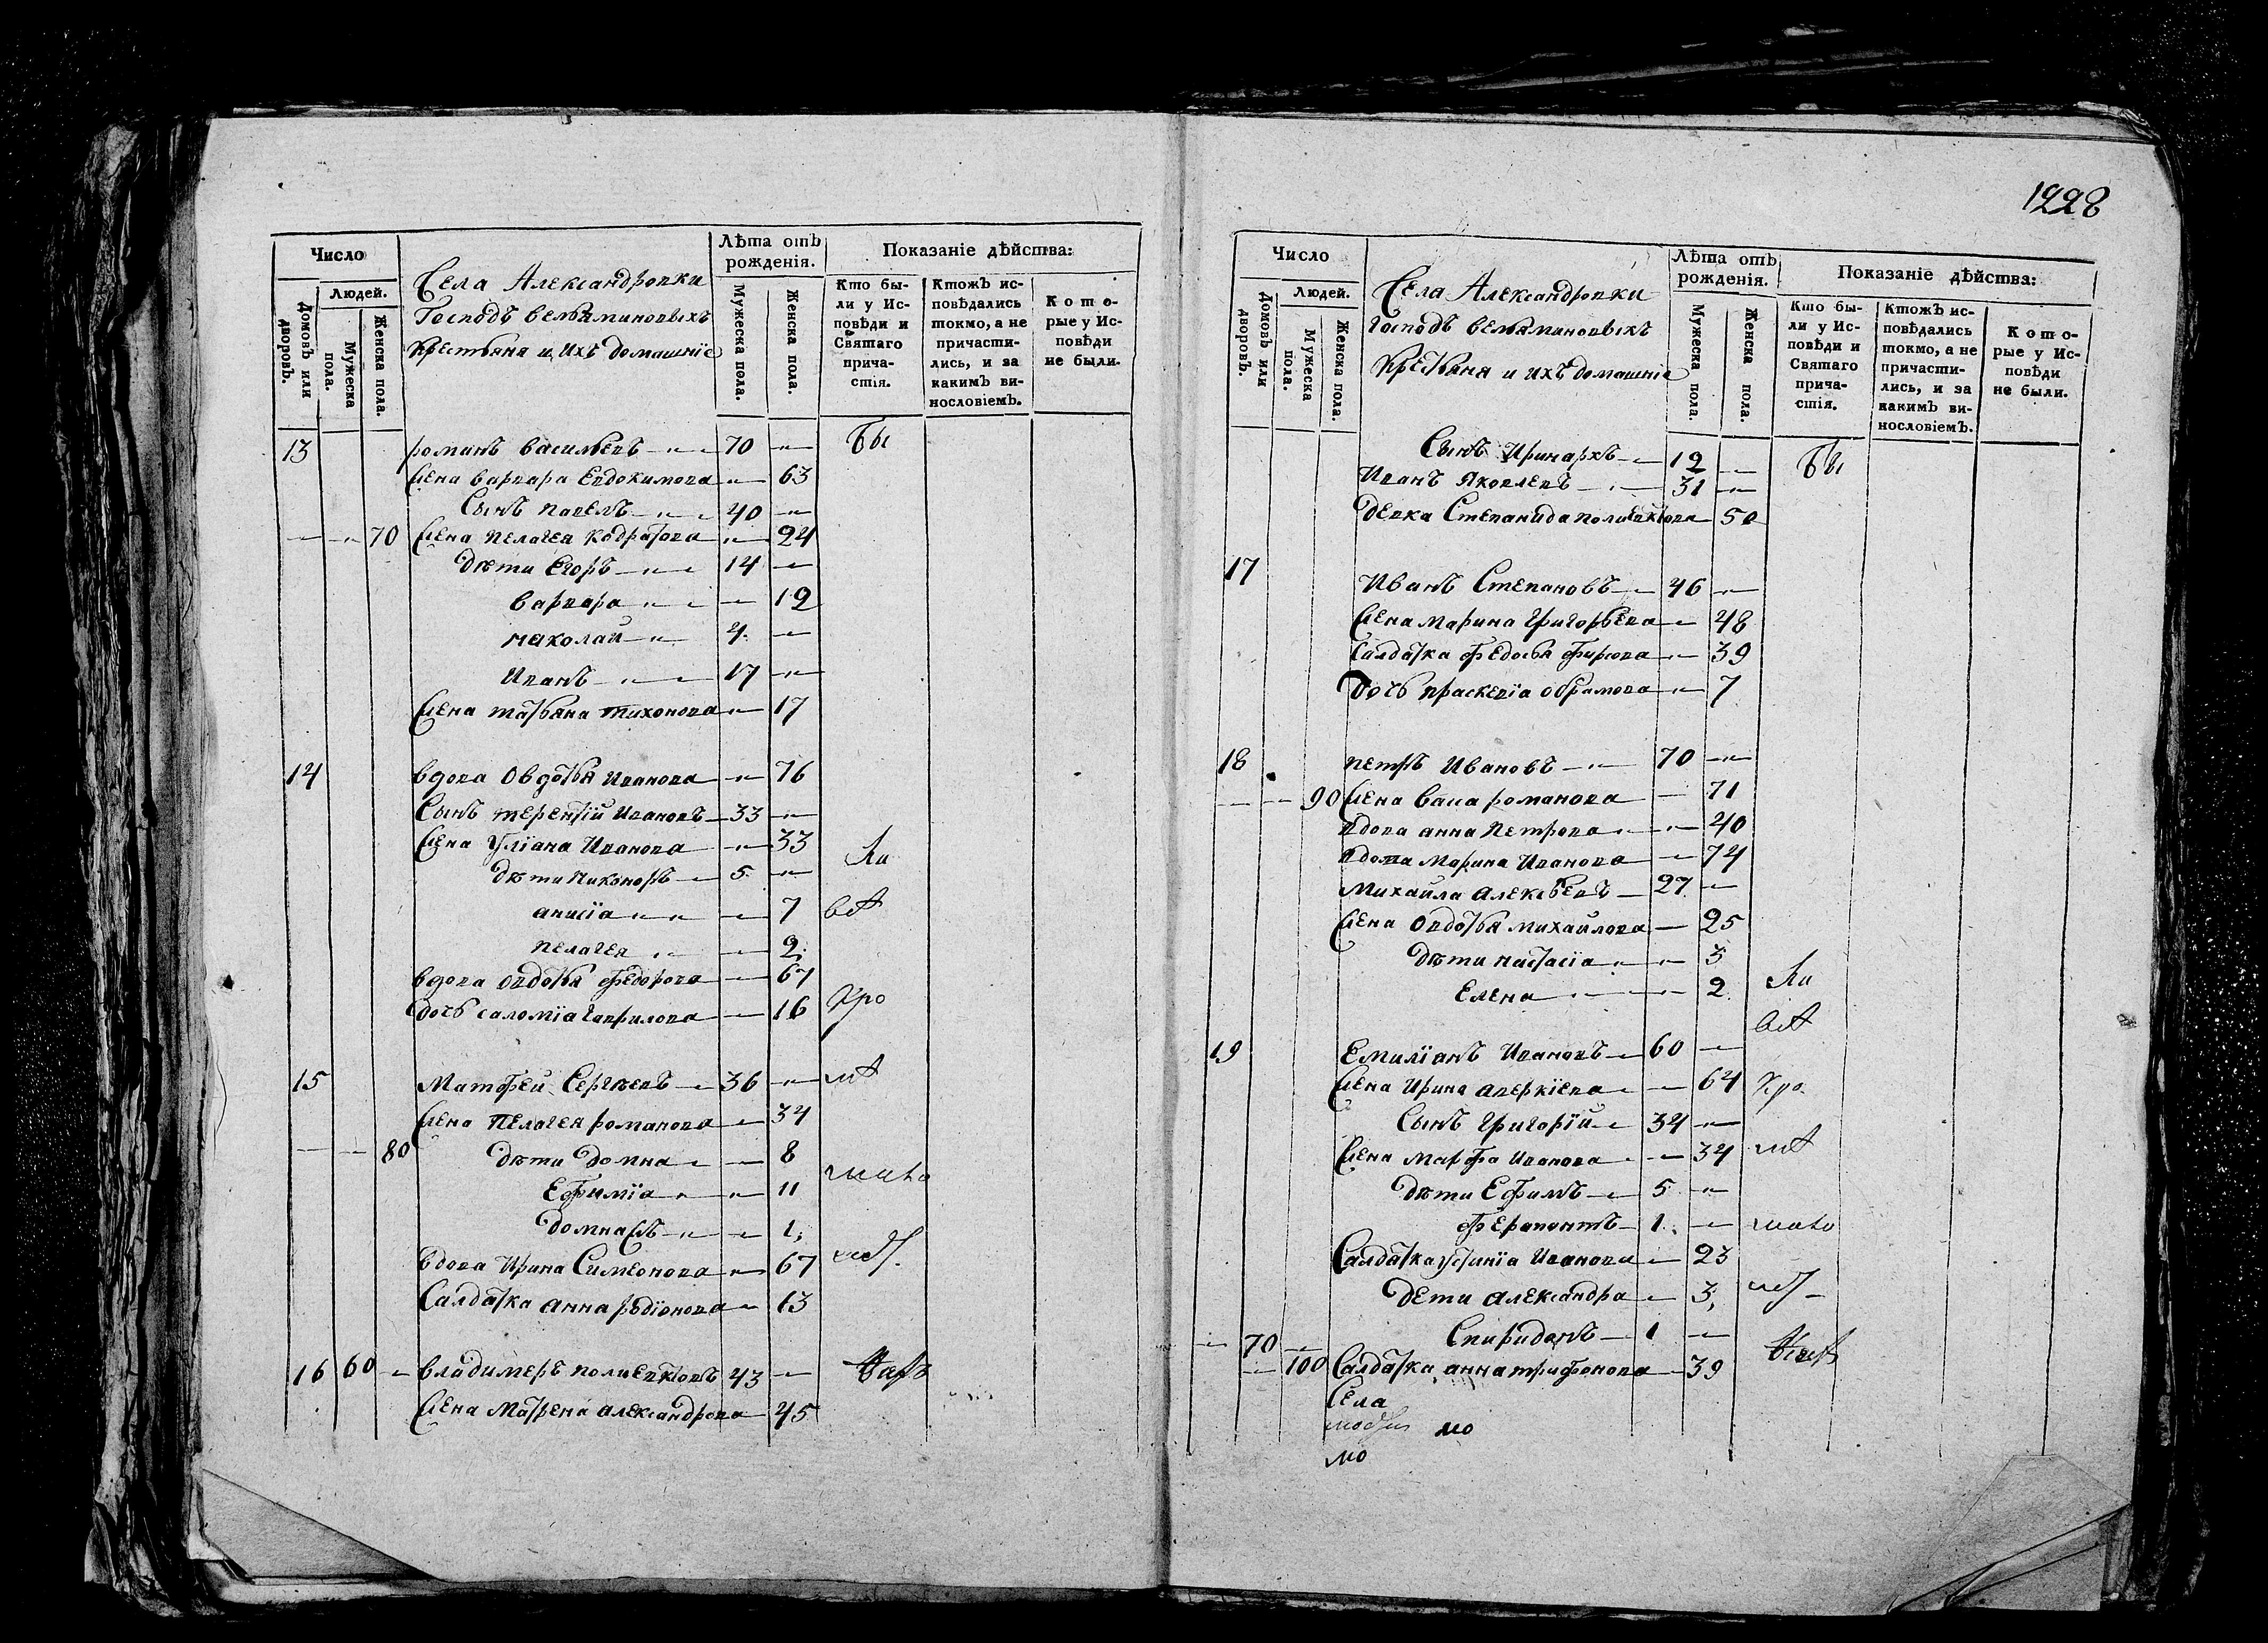 Число
Людей.
Домовъ или дворовъ.
Мужеска пола.
Женска пола.
Села Александровки
Господъ вельяминовыхъ
крестьяня и ихъ домашніе
Лѣта отъ рожденія.
Мужеска пола.
Женска пола.
Показаніе дѣйства:
Кто были у Исповѣди и Святаго причастія.
Ктожъ исповѣдались токмо, а не причастились, и за какимъ винословіемъ.
Которые у Исповѣди не были.
13 романъ васильевъ 70 Бы
Жена варвара Евдокимова 63
Сынъ павелъ 40
70 Жена пелагея кодратова 24
дѣти Егоръ 14
варвара 12
николай 4
Иванъ 17
Жена татьяна тихонова 17
14 вдова Овдотья Иванова 76
Сынъ терентій Ивановъ 33
Жена Уліана Иванова 33
дѣти никоноръ 5
анисіа 7
пелагея 2
вдова Овдотья федорова 67
дочь саломіа гаврилова 16
15 Матфей Сергѣевъ 36
Жена пелагея романова 34
80 дѣти домна 8
Ефиміа 11
домнасъ 1
вдова Ирина Симеонова 67
Салдатка анна родіонова 13
16 60 владимеръ полиевктовъ 43
Жена матрена александрова 45
1228
Число
Людей.
Домовъ или дворовъ.
Мужеска пола.
Женска пола.
Села Александровки
господъ вельяминовыхъ
крестьяня и ихъ домашніе
Лѣта отъ рожденія.
Мужеска пола.
Женска пола.
Показаніе дѣйства:
Кто были у Исповѣди и Святаго причастія.
Ктожъ исповѣдались токмо, а не причастились, и за какимъ винословіемъ.
Которые у Исповѣди не были.
Сынъ Иринархъ 12 Бы
Иванъ Яковлевъ 31
девка Степанида полиевктова 50
17 Иванъ Степановъ 46
Жена марина григорьева 48
Салдатка федосья фирсова 39
дочь праскевіа обрамова 7
18 петръ Ивановъ 70
90 Жена васа романова 71
вдова анна петрова 40
вдова марина Иванова 74
михайла алексѣевъ 27
Жена Овдотья михайлова 25
дѣти настасіа 3
Елена 2
19 Емиліанъ Ивановъ 60
Жена Ирина аверкіева 64
Сынъ григорій 34
Жена марфа Иванова 34
дѣти Ефимъ 5
ферапонтъ 1
Салдатка устиніа Иванова 23
дети александра 3
Спиридонъ 1
70
100 Салдатка анна трифонова 39
Села
мо
мо